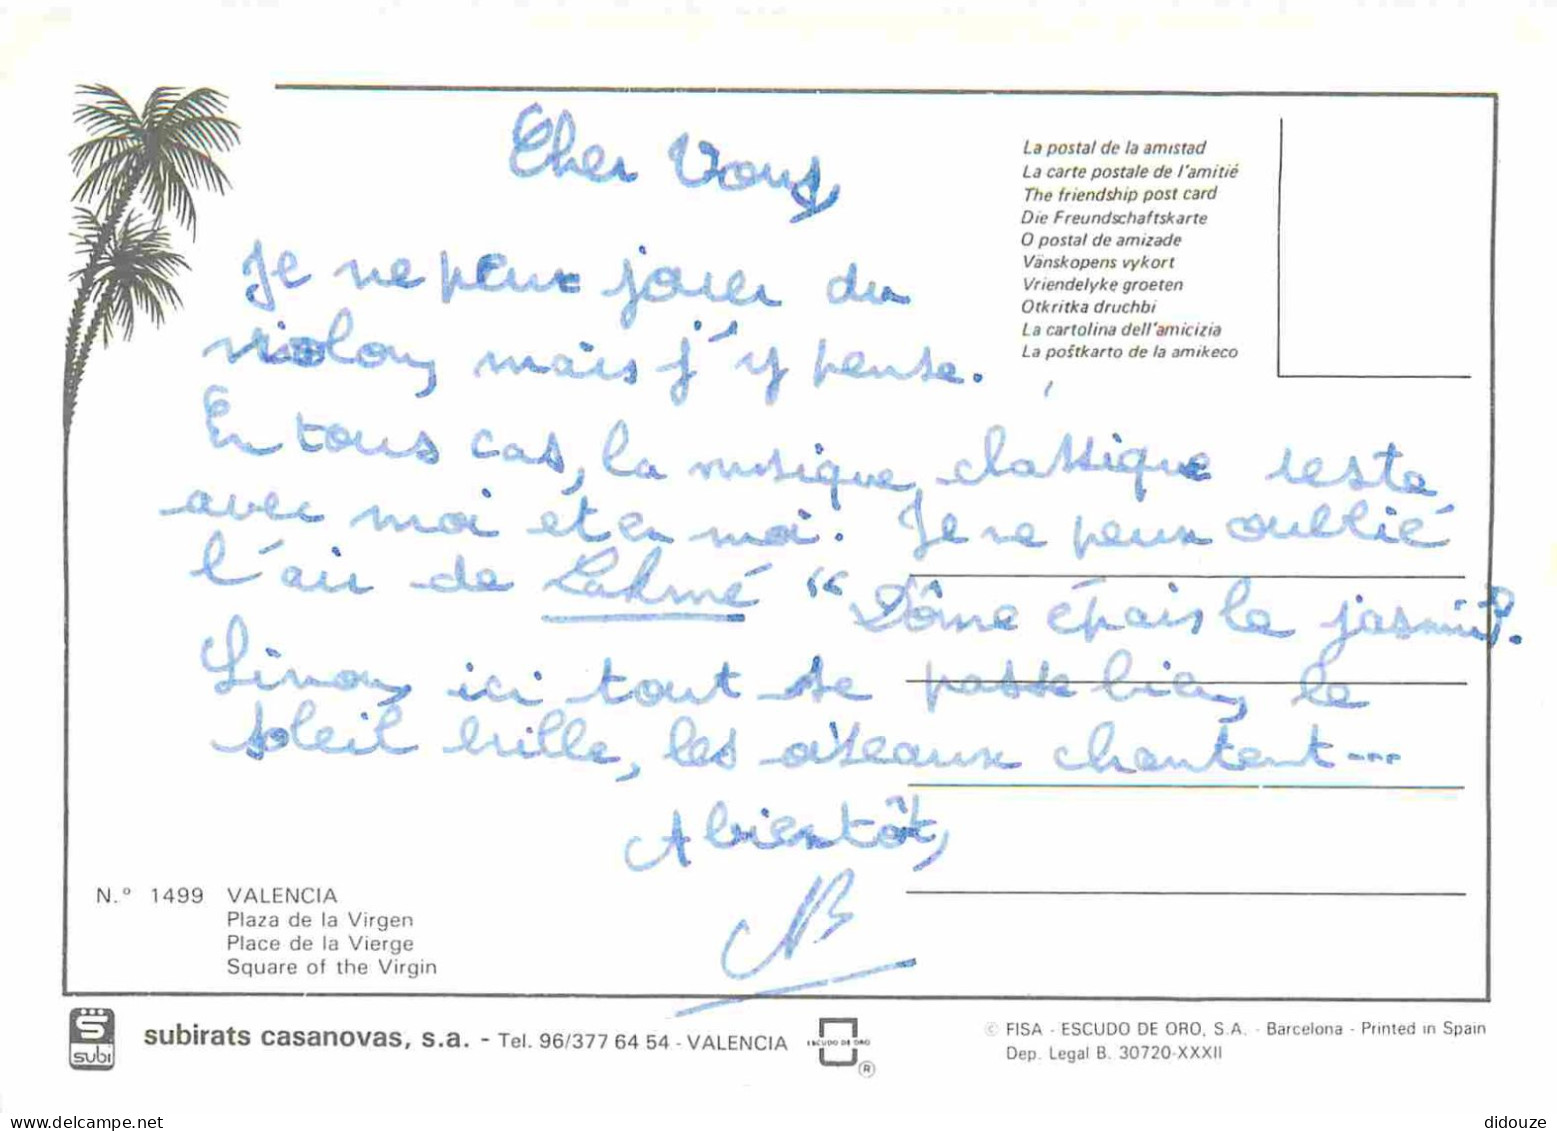 Cher Vous,
Je ne peux jouer du
violon, mais j'y pense.
En tous cas, la musique classique reste
avec moi et en moi. Je ne peux oublié
l'air de Lakmé "Dôme épais le jasmin".
Sinon, ici tout se passe bien, le
soleil brille, les oiseaux chantent ---
A bientôt,
NB
La postal de la amistad
La carte postale de l'amitié
The friendship post card
Die Freundschaftskarte
O postal de amizade
Vänskopens vykort
Vriendelyke groeten
Otkritka druchbi
La cartolina dell'amicizia
La poŝtkarto de la amikeco
N.º 1499 VALENCIA
Plaza de la Virgen
Place de la Vierge
Square of the Virgin
subi
subirats casanovas, s.a. - Tel. 96/377 64 54 - VALENCIA
ESCUDO DE ORO
®
© FISA - ESCUDO DE ORO, S.A. - Barcelona - Printed in Spain
Dep. Legal B. 30720-XXXII
didouze